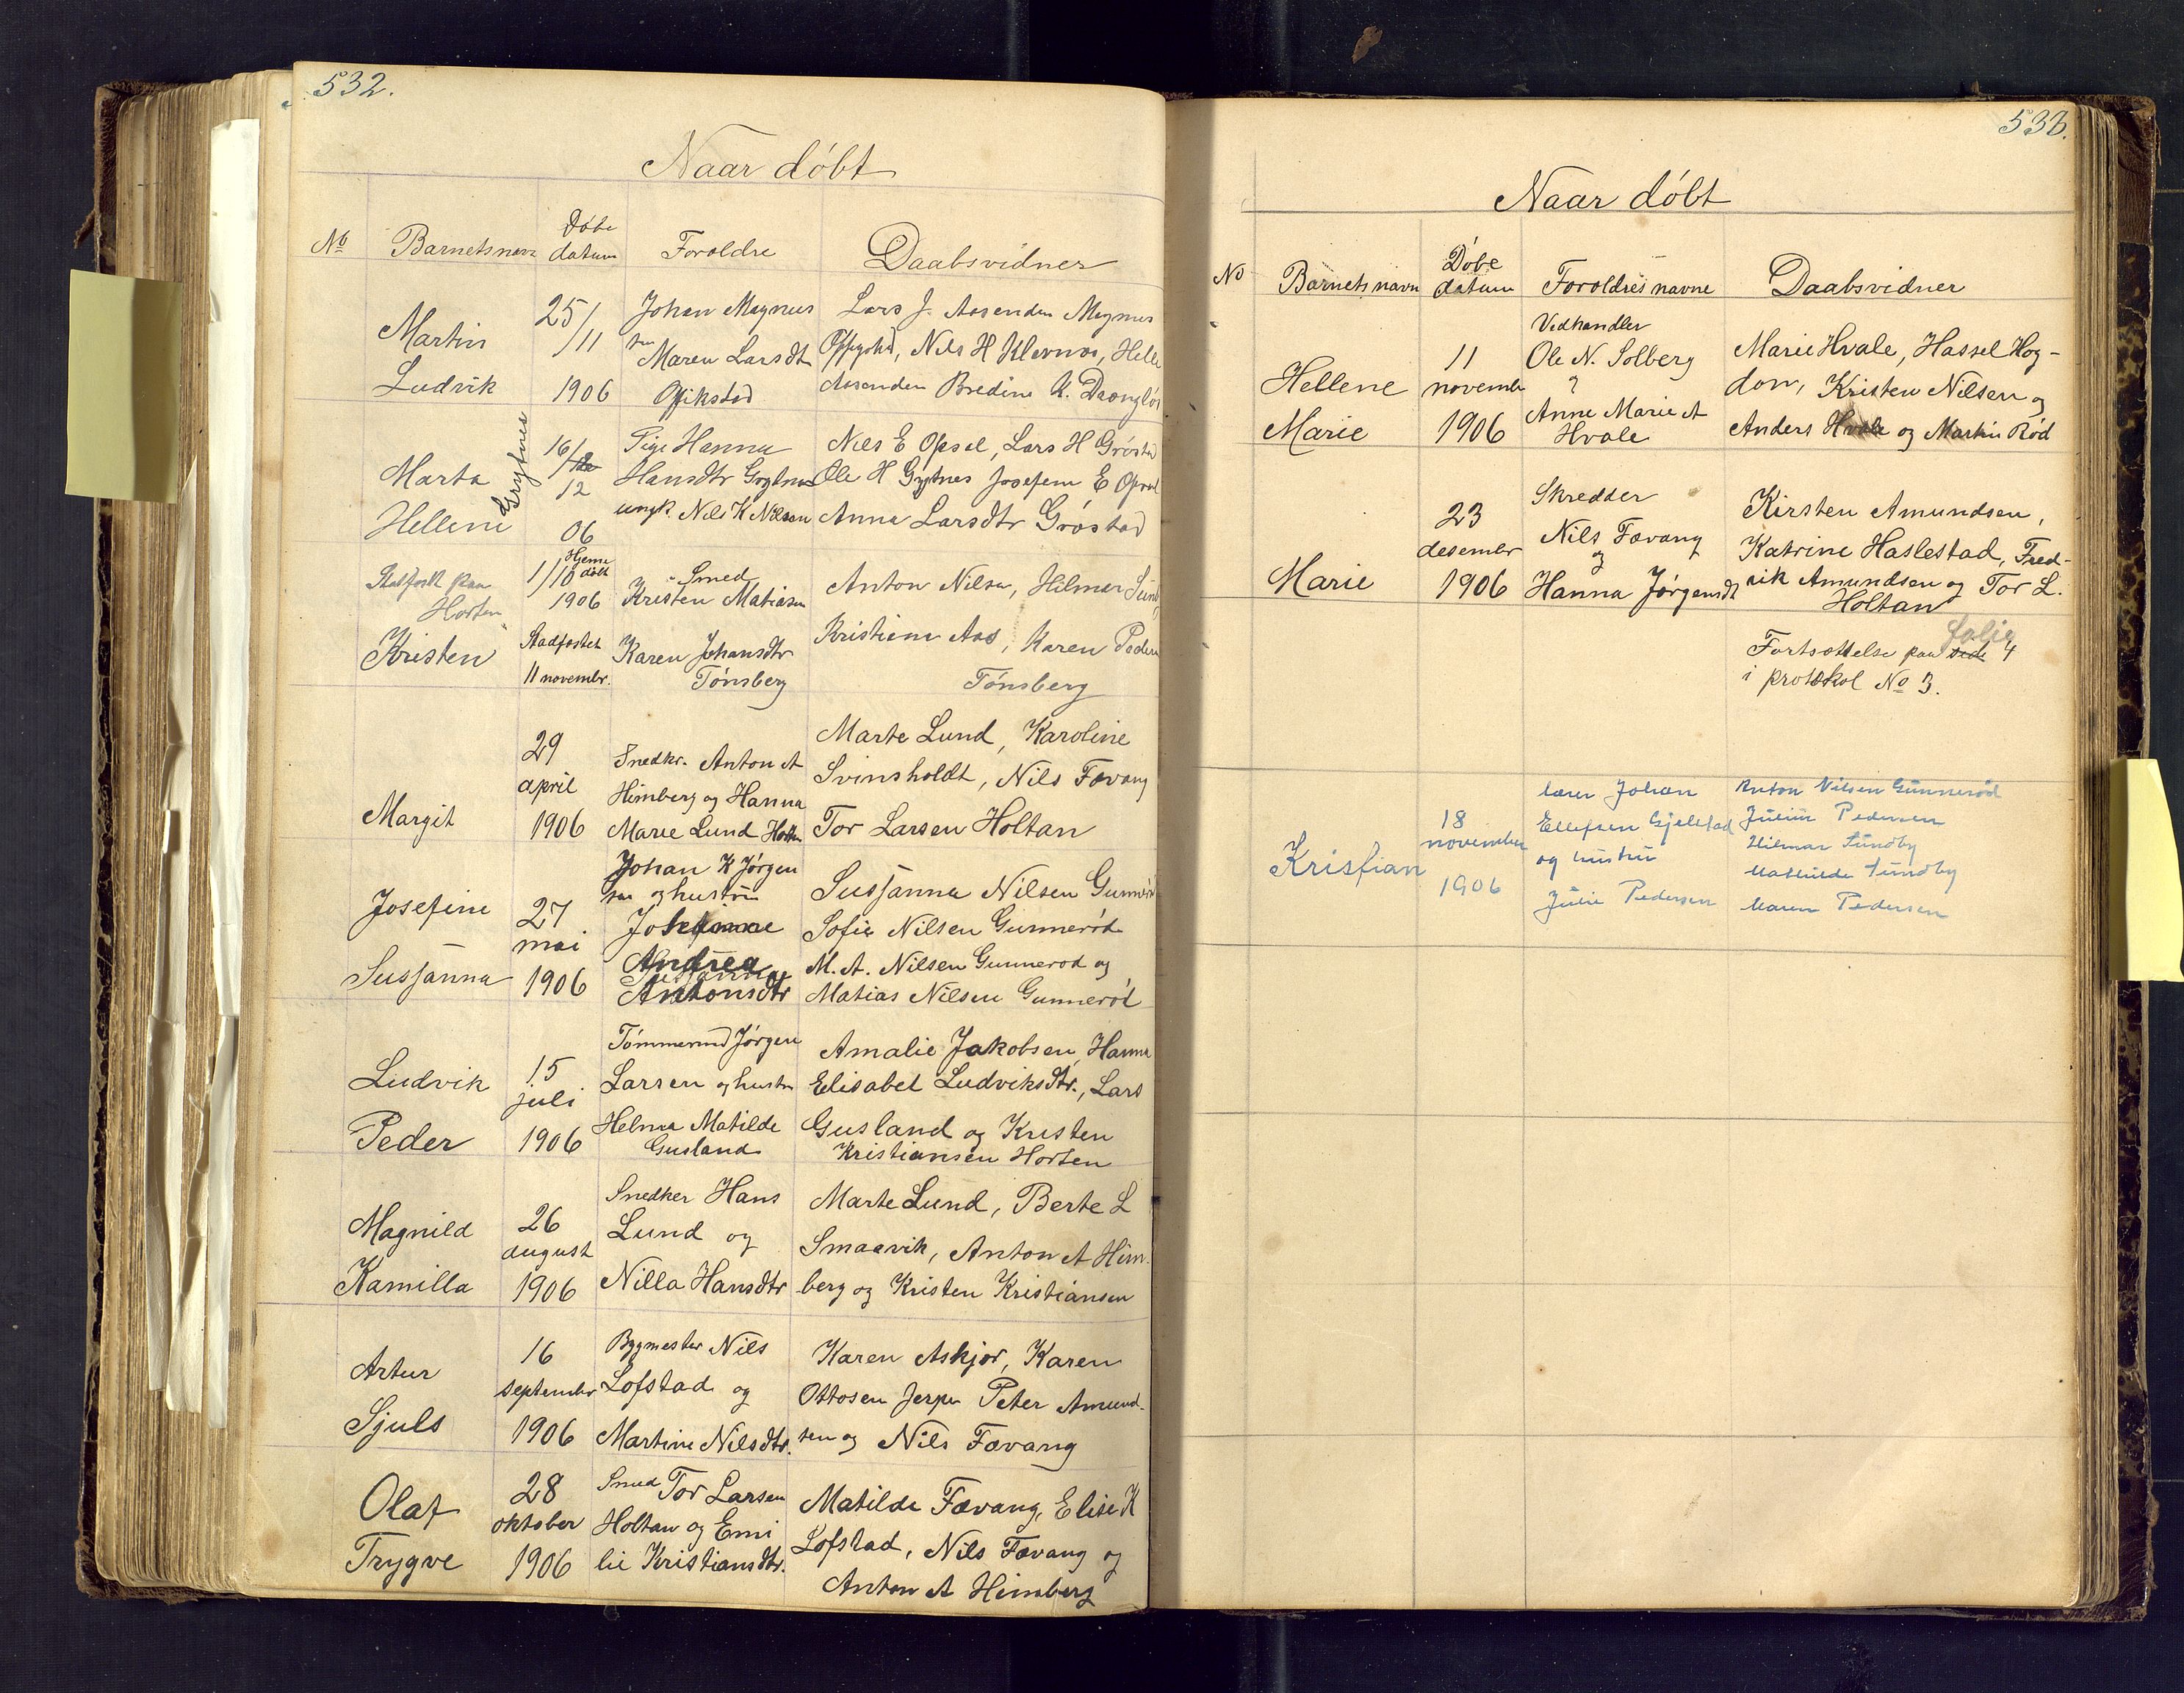 532.
Naar döbt
No Barnetsnavn Döbe datum Foroldre Daabsvidner
Martin Ludvik
25/11 1906
Johan Magnus
Maren Larsdt
Lars J. Aasenden Magnus
Nils H Klevnos, Helle
Aasenden Bredine K.
Marta Hellene Grytnes
16/12 06
Pige Hanna
Hansdtr Grytnes
ungk. Nils K Nilsen
Nils E Opsal, Lars H Gröstad
Ole H Grytnes Josefem E Opsal
Anna Larsdtr Gröstad
Stadfest paa
Horten
Kristen
1/10 Hjeme döbt
1906
Stadfestet
11 novembr.
Smed
Kristen Matiasen
Karen Johansdtr
Tönsberg
Anton Nilsen, Hilmar
Kristiane Aas, Karen Peders
Tönsberg
Margit
29
april
1906
Snedkr. Anton A
Himberg og Hanna
Marie Lund
Marte Lund, Karoline
Svinsholdt, Nils Fævang
Tor Larsen Holtan
Josefine
Susjanna
27
mai
1906
Johan K Jörgen
sen og hustru
Andrea
Antonsdtr
Susjanna Nilsen Gunneröd
Sofie Nilsen Gunneröd
M. A. Nilsen Gunneröd og
Matias Nilsen Gunneröd
Ludvik
Peder
15
juli
1906
Tömmermd Jörgen
Larsen og hustru
Helma Matilde
Gusland
Amalie Jakobsen, Hanna
Elisabet Ludviksdtr., Lars
Gusland og Kristen
Kristiansen Horten
Magnild
Kamilla
26
august
1906
Snedker Hans
Lund og
Nilla Hansdtr
Marte Lund, Berte L
Smaavik, Anton A Him-
berg og Kristen Kristiansen
Artur
Sjuls
16
septembr
1906
Bygmester Nils
Lofstad og
Martine Nilsdtr.
Karen Askjor, Karen
Ottosen Jerpe Peter Amund-
sen og Nils Fævang
Olaf
Trygve
28
oktober
1906
Smed Tor Larsen
Holtan og Emi
lie Kristiansdtr.
Matilde Fævang, Elise K
Lofstad, Nils Fævang og
Anton A Himberg
533.
Naar döbt
No Barnets navn Döbe datum Foroldres navne Daabsvidner
Hellene
Marie
11
novembr
1906
Vedhandler
Ole N. Solberg
?
Anne Marie A
Hvale
Marie Hvale, Hassel Hog-
don, Kristen Nilsen og
Anders Hvale og Martin Röd
Marie
23
desembr
1906
Skredder
Nils Fævang
og
Hanna Jörgensdt
Kirsten Amundsen,
Katrine Haslestad, Fred-
rik Amundsen og Tor L.
Holtan
folie
Fortsættelse paa side 4
i protokol No 3.
Kristian
18
november
1906
lærer Johan
Ellefsen Gjelstad
og hustru
Julie Pedersen
Anton Nilsen Gunneröd
Julius Pedersen
Hilmar Sundby
Mathilde Sundby
Maren Pedersen